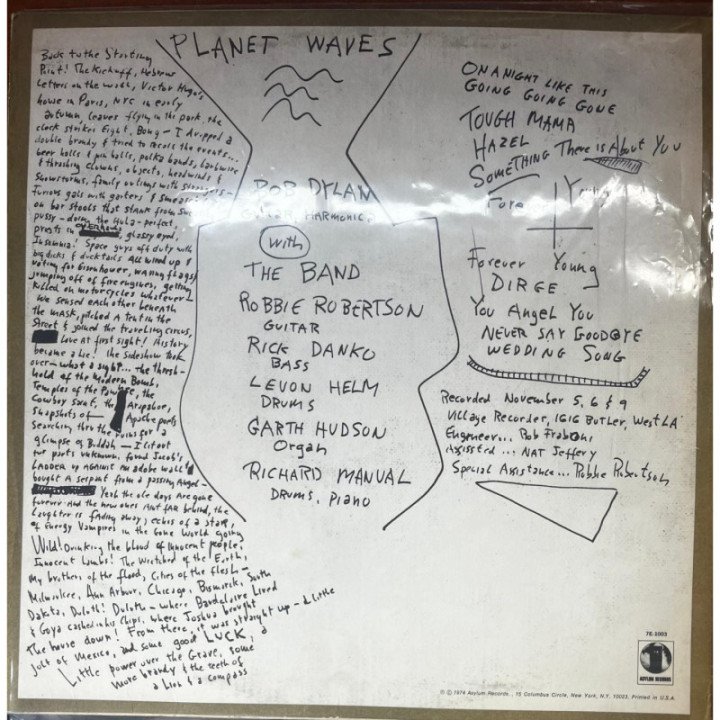 PLANET WAVES
Back to the Starting
Point! The Kickoff, Hebrew
Letters on the wall, Victor Hugo's
house in Paris, NYC in early
autumn, leaves flying in the park, the
clock strikes Eight, Bong – I dropped a
double brandy & tried to recall the events...
beer halls & pin balls, polka bands, barbwire
& thrashing clowns, objects, headwinds &
Snowstorms, family outings with strangers –
Furious gals with garters & smeared
on bar stools that stank from
pussy – doing the Hula – perfect,
priests in glassy eyed,
Insomnia! Space guys off duty with
big dicks & ducktails All wired up &
voting for Eisenhower, waving flags &
jumping off of fire engines, getting
killed on motorcycles whatever –
We sensed each other beneath
the mask, pitched a tent in the
Street & joined the traveling circus,
Love at first sight! History
became a lie! the sideshow took
over – what a sight... the thresh-
hold of the Modern Bomb,
Temples of the Pawnee, the
Cowboy saint, the Arapahoe,
Snapshots of Apache poets
Searching thru the ruins for a
glimpse of Buddah – I lit out
for parts unknown, found Jacob's
LADDER up AGAINST AN adobe wall &
bought A serpent from a passing Angel –
Yeah the ole days Are gone
forever And the new ones Aint far behind, the
Laughter is fading away, echos of a star,
of Energy Vampires in the Gone World going
Wild! Drinking the blood of innocent people,
Innocent Lambs! The Wretched of the Earth,
My brothers of the flood, Cities of the flesh –
Milwaukee, Ann Arbor, Chicago, Bismarck, South
Dakota, Duluth! Duluth – where Baudelaire Lived
& Goya cashed in his Chips, where Joshua brought
The house down! From there, it was straight up – a little
jolt of Mexico, and some good LUCK, a
Little power over the Grave, some
more brandy & the teeth of
a Lion & a compass
BOB DYLAN
HARMONICA
with
THE BAND
ROBBIE ROBERTSON
GUITAR
RICK DANKO
BASS
LEVON HELM
DRUMS
GARTH HUDSON
Organ
RICHARD MANUAL
DRUMS, Piano
ON A NIGHT LIKE THIS
GOING GOING GONE
TOUGH MAMA
HAZEL
SOMETHING There is About You
Fore Young
Forever Young
DIRGE
You Angel You
NEVER SAY GOODBYE
WEDDING SONG
Recorded November 5, 6 & 9
Village Recorder, 1616 Butler, West LA
Engineer... Rob Fraboni
Assisted... NAT Jeffery
Special Assistance... Robbie Robertson
7E-1003
ASYLUM RECORDS
℗ © 1974 Asylum Records., 15 Columbus Circle, New York, N.Y. 10023. Printed in U.S.A.